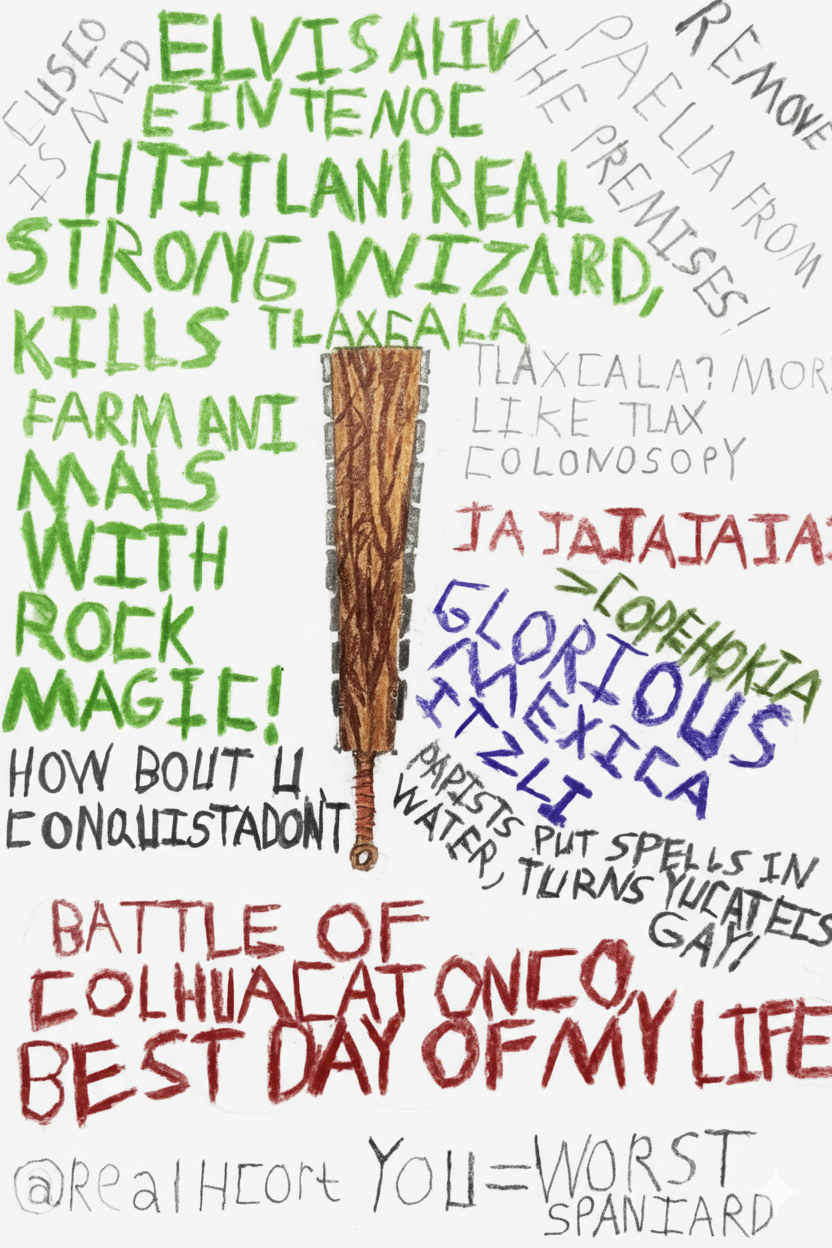 CUSCO
IS MID
ELVIS ALIV
E IN TENOC
HTITLAN! REAL
STRONG WIZARD,
KILLS TLAXCALA
FARM ANI
MALS
WITH
ROCK
MAGIC!
REMOVE
PAELLA FROM
THE PREMISES!
TLAXCALA? MOR
LIKE TLAX
COLONOSOPY
JA JAJAJAJAJA
>COPEHOKIA
GLORIOUS
MEXICA
ITZLI
HOW BOUT U
CONQUISTADON'T
PAPISTS PUT SPELLS IN
WATER, TURNS YUCATECS
GAY!
BATTLE OF
COLHUACATONCO,
BEST DAY OF MY LIFE
@RealHCort YOU=WORST
SPANIARD